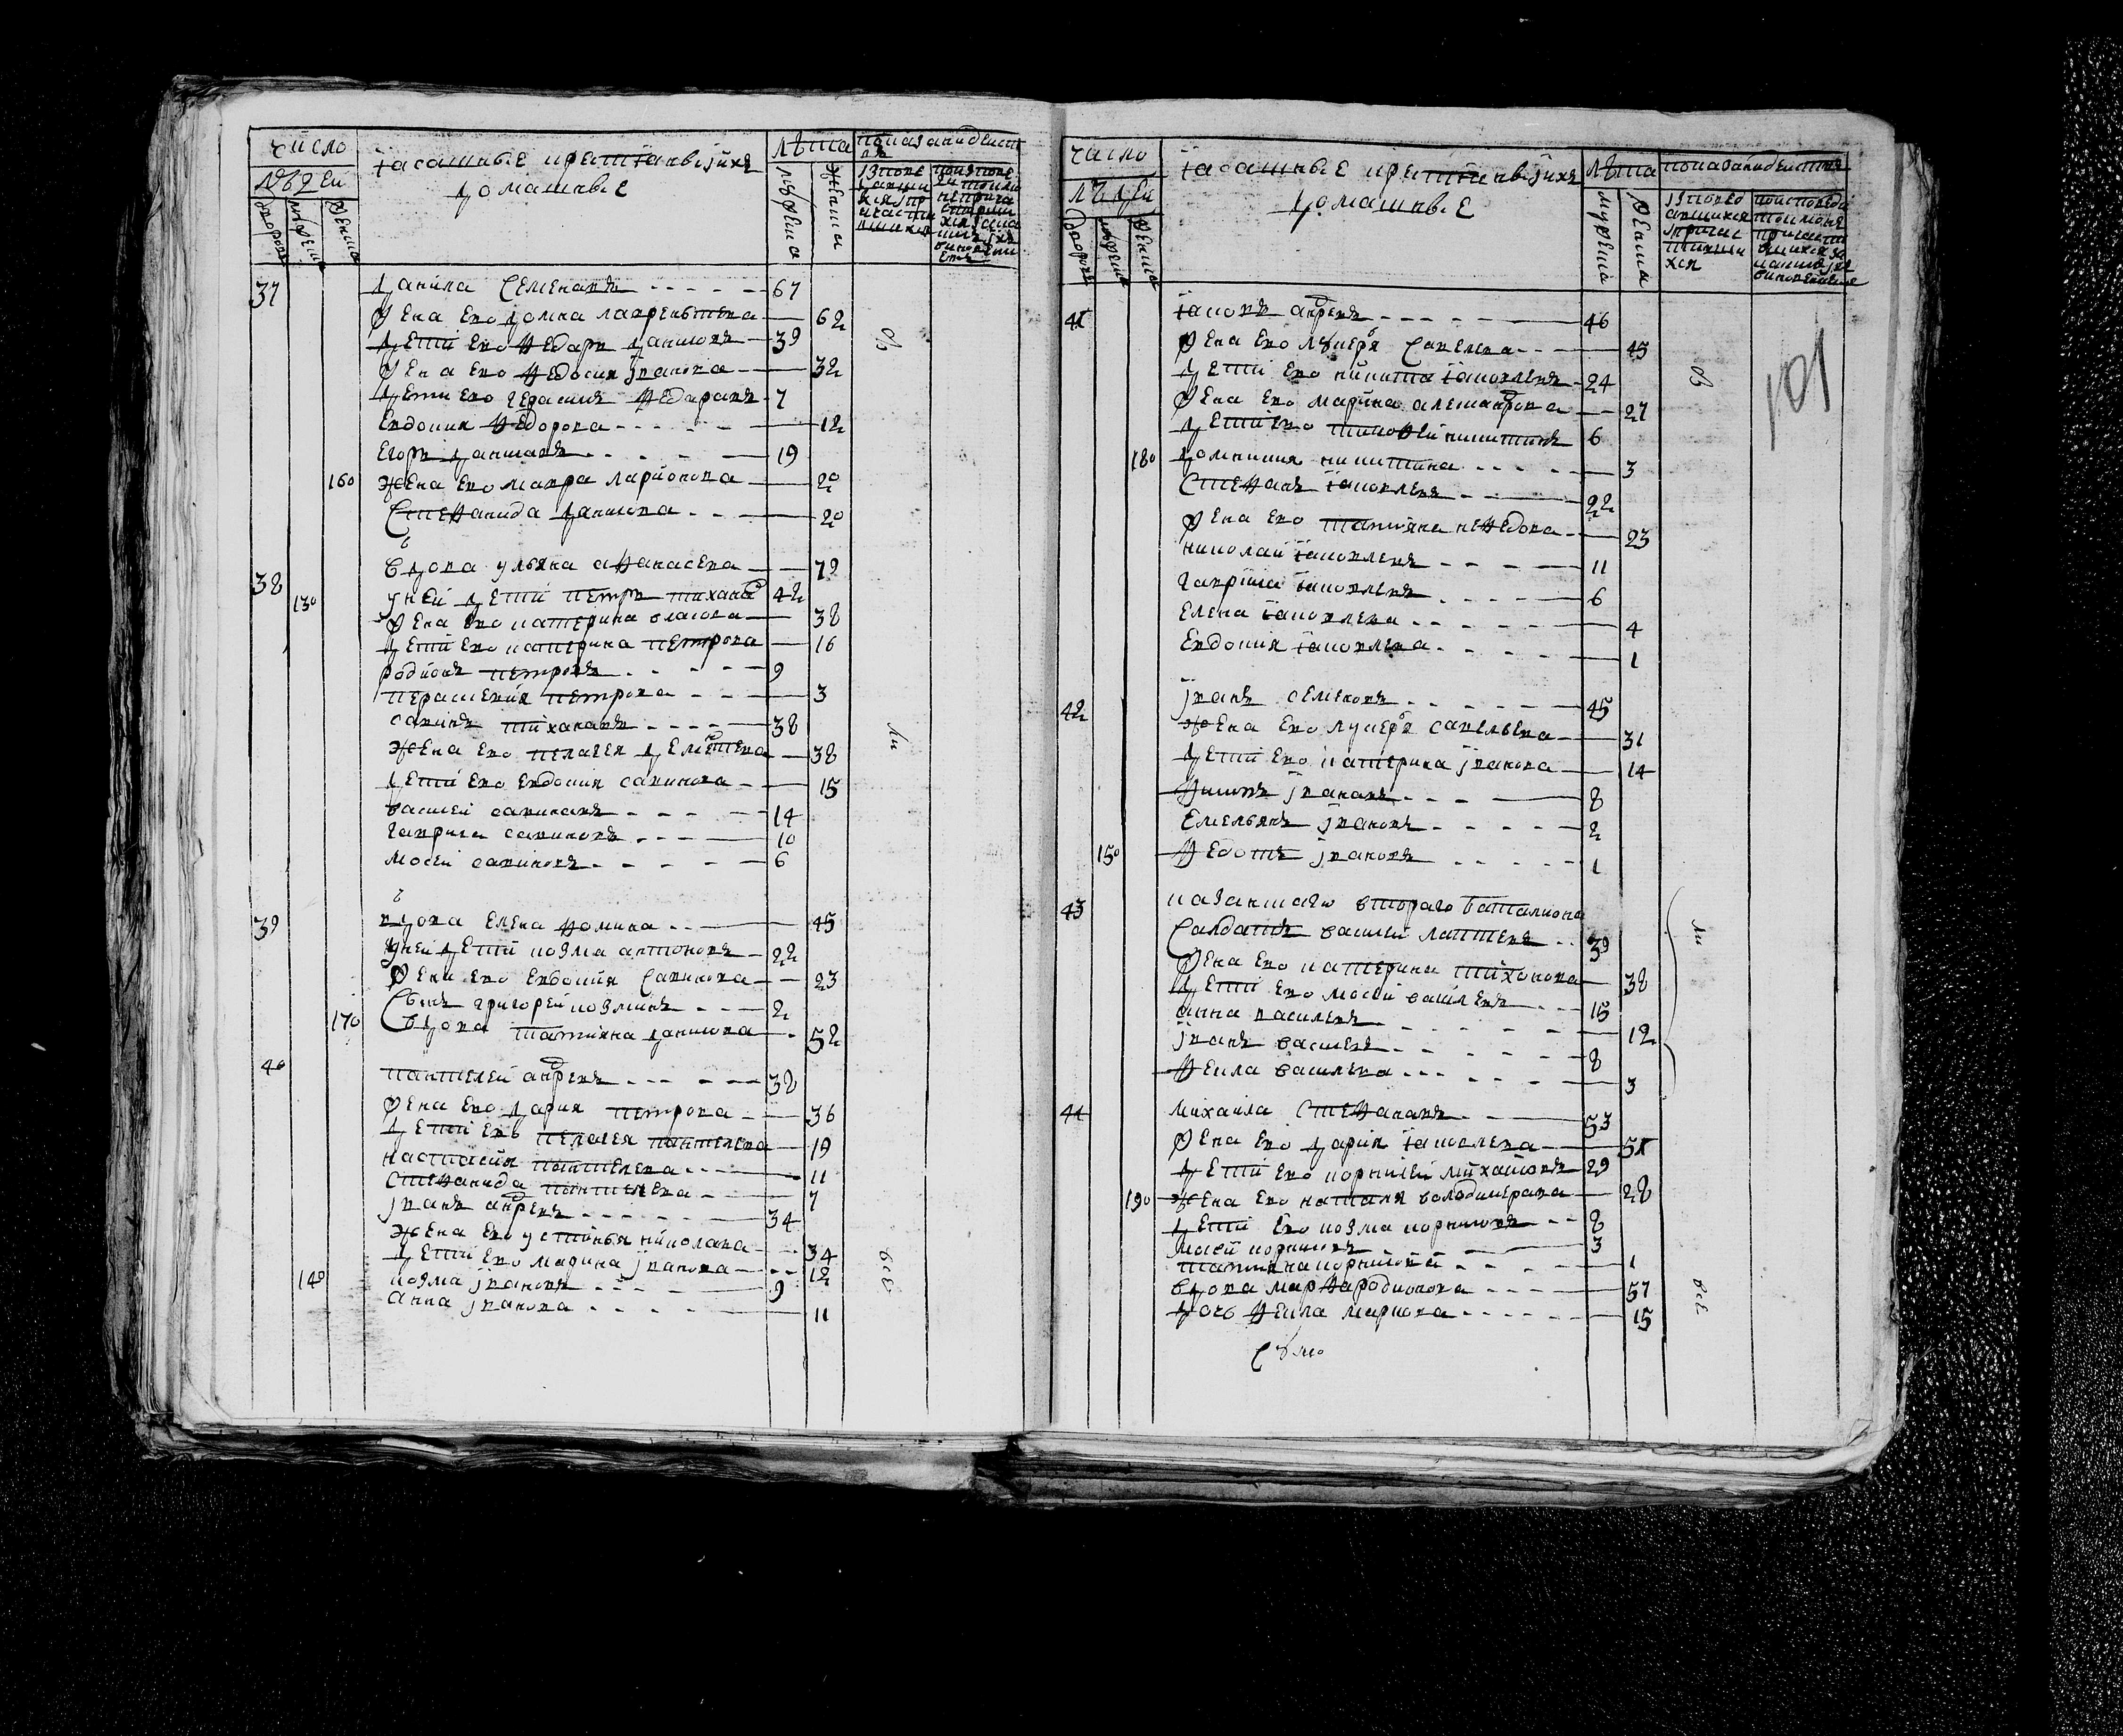 число
людей
ясашные крестьяне и ихъ
домашные
лѣта
показаниедейст
въ
дворовъ
мужеска
женска
мужеска
женска
37 Данила Семеновъ 67
Жена ево Домна лаврентьева 62
Дети ево Федоръ Даниловъ 39
Жена ево Федосия Иванова 32
Дети ево герасимъ Федоровъ 7
Евдокия Федорова 12
Егоръ Даниловъ 19
160 Жена ево мавра ларионова 20
Степанида Данилова 20
38 Вдова ульяна афанасева 79
130 у ней Дети петръ тихонов 42
Жена ево катерина власова 38
Дети ево катерина петрова 16
родионъ петровъ 9
перасковия петрова 3
савинъ тихановъ 38
Жена ево пелагея Дементева 38
Дети ево Евдокия савинова 15
василей савиновъ 14
гаврила савиновъ 10
мосей савиновъ 6
39 вдова Елена фомина 45
у ней Дети козма антоновъ 22
Жена ево Евдокия Савинова 23
Сынъ григорей козминъ 2
170 Вдова татияна Данилова 52
40 пантелей андревъ 38
Жена ево Дария петрова 36
Дети ево пелагея пантелева 19
настасия пантелева 11
Степанида пантелева 7
Иванъ андревъ 34
Жена ево устинья николава 34
Дети ево марина Иванова 12
140 козма Ивановъ 9
анна Иванова 11
в
ли
все
число
людей
ясашные крестьяне и ихъ
домашные
лѣта
показаниедейства
дворовъ
мужеска
женска
мужеска
женска
101
41 яковъ андревъ 46
Жена ево лукерья Савелева 45
Дети ево никита яковлевъ 24
Жена ево марина александрова 27
Дети ево тимофей никитинъ 6
180 Домникия никитина 3
Степанъ яковлевъ 22
Жена ево татияна нефедова 23
николай яковлевъ 11
гаврила яковлевъ 6
Елена яковлева 4
Евдокия яковлева 1
42 Иванъ семеновъ 45
Жена ево лукерья савельева 31
Дети ево катерина Иванова 14
Филипъ Ивановъ 8
Емельянъ Ивановъ 2
150 Федотъ Ивановъ 1
43 казанскаго втораго баталиона
Салдатъ василей лаптевъ 39
Жена ево катерина тихонова 38
Дети ево мосей василевъ 15
анна василева 12
Иванъ василевъ 8
Фекла василева 3
44 михайла Степановъ 53
Жена ево Дария яковлева 51
Дети ево корнилей михайловъ 29
190 Жена ево наталя володимерова 28
Дети ево козма корниловъ 8
мосей корниловъ 3
татияна корнилова 1
вдова марфа родионова 57
Дочь Фекла маркова 15
в
ли
все